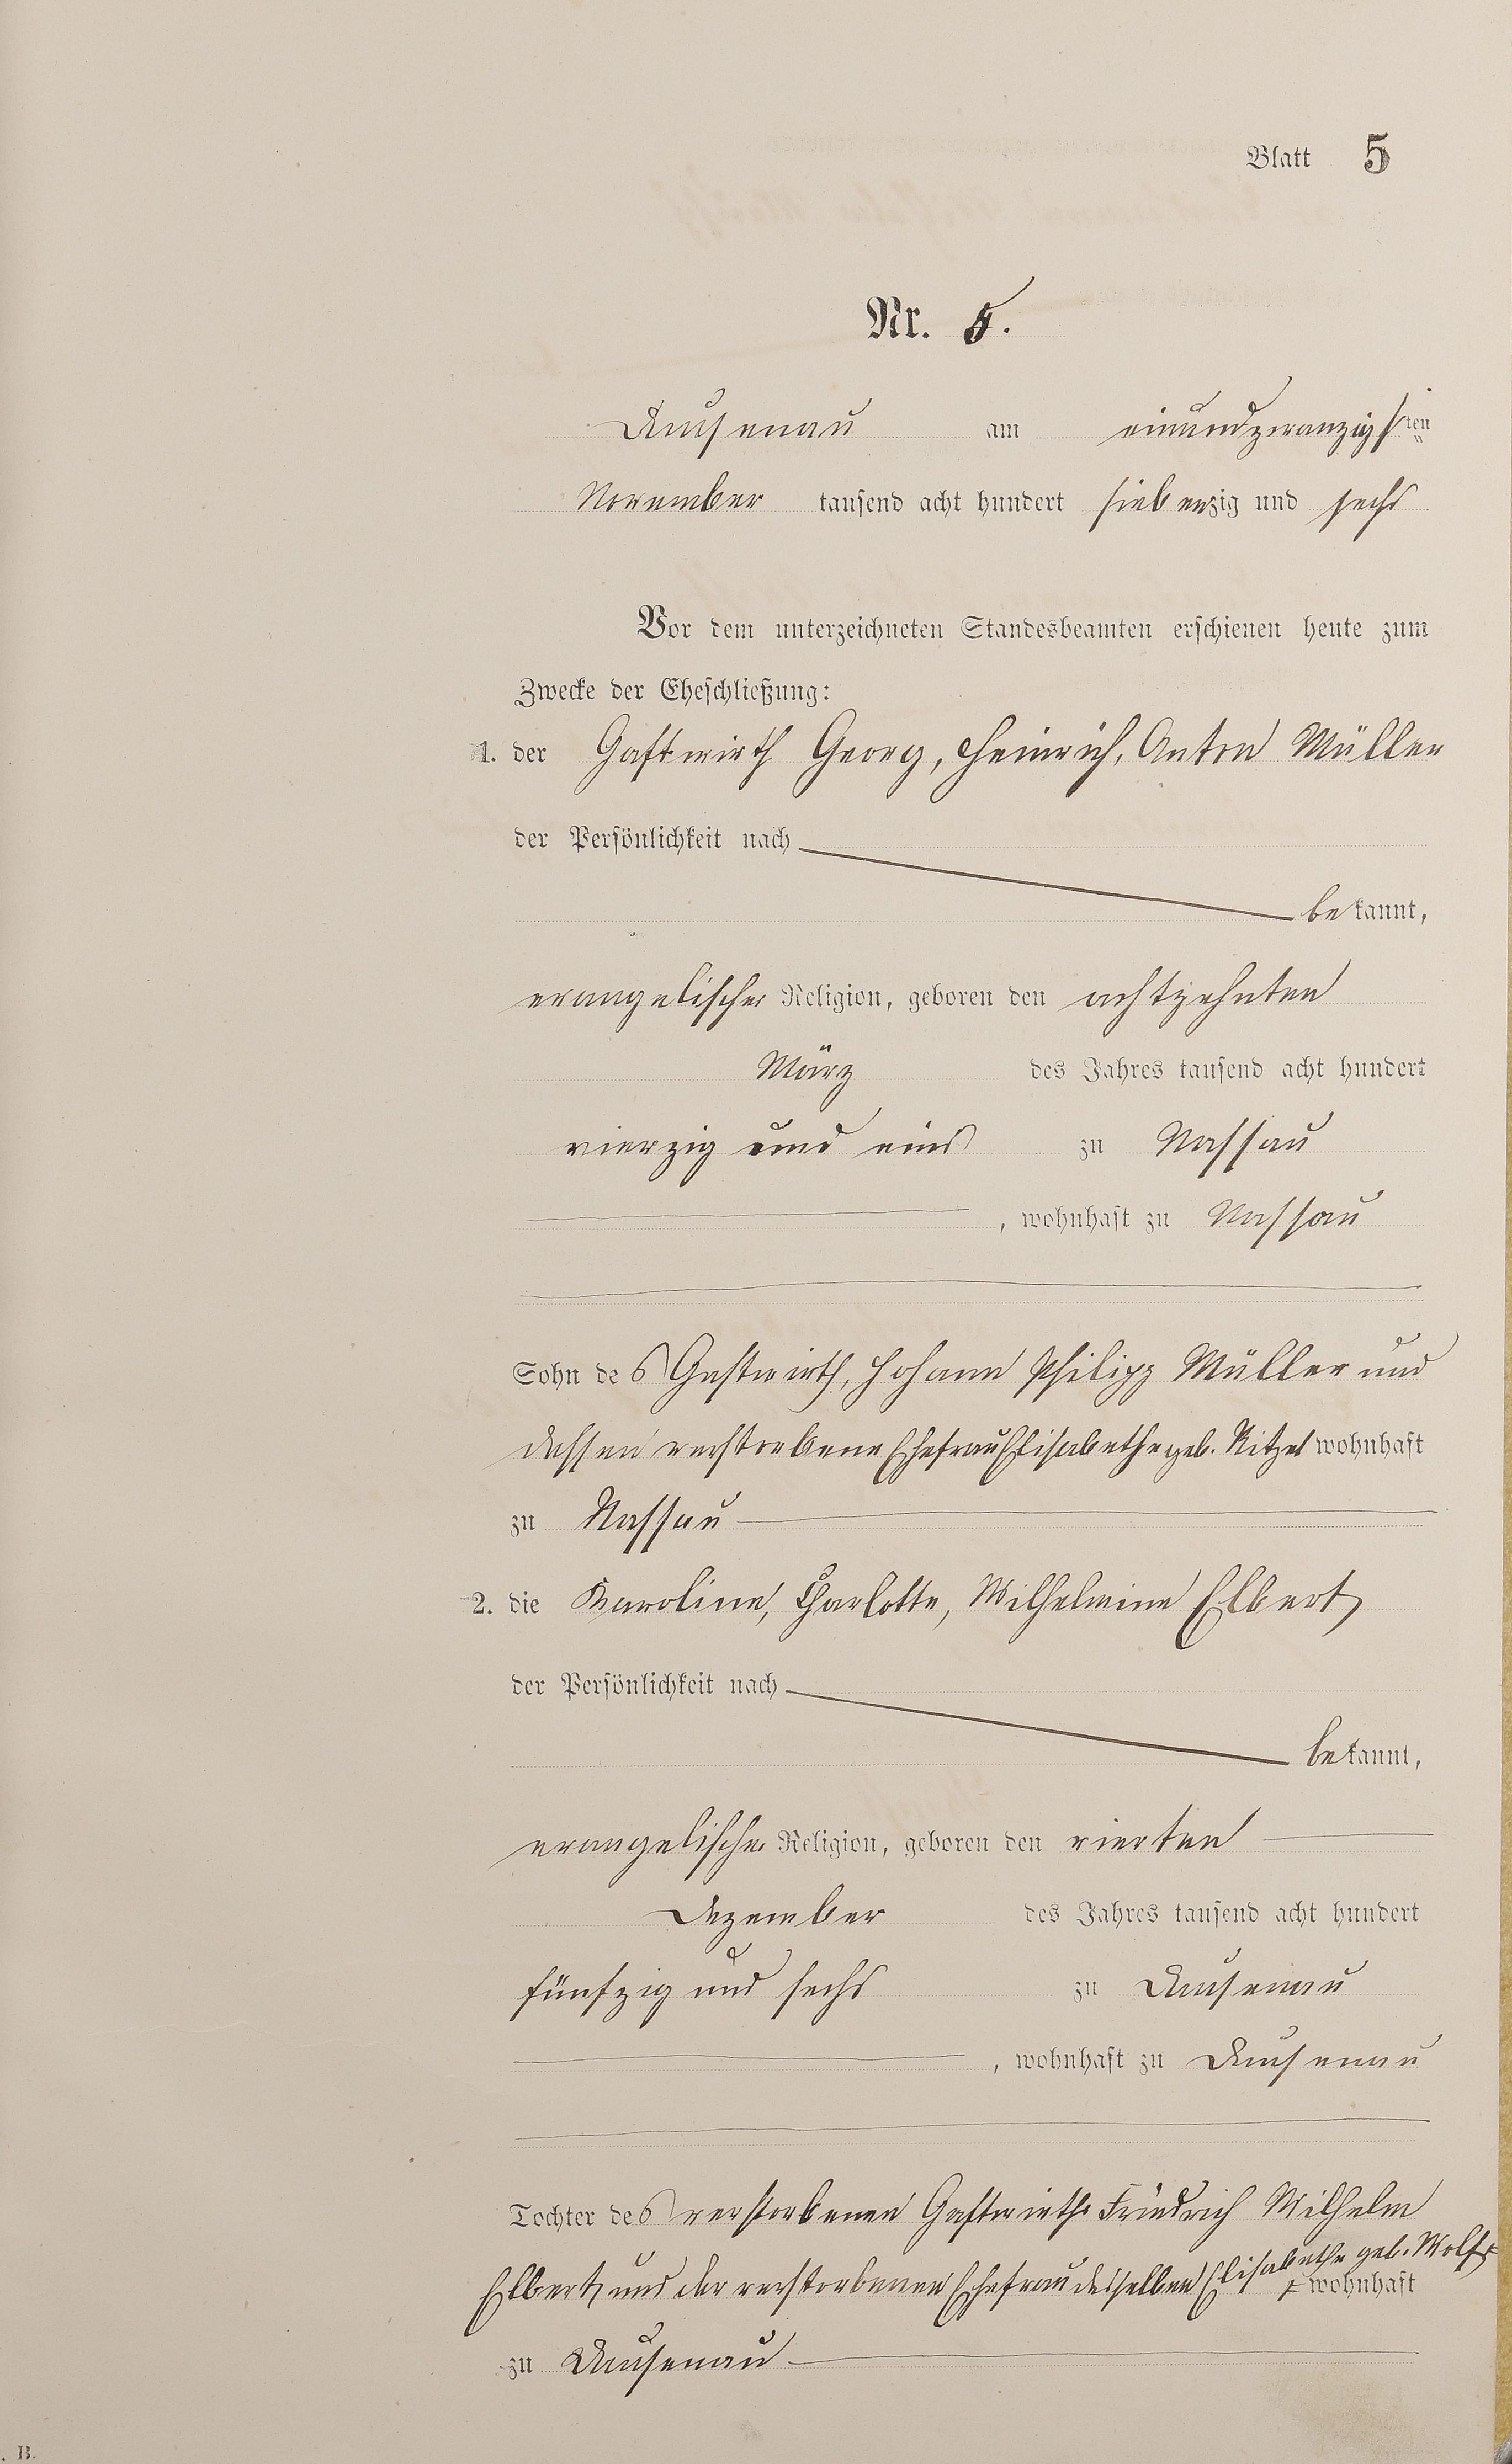 Blatt 5
Nr. 5.
Dausenau am einundzwanzigsten
November tausend acht hundert siebenzig und sechs
Vor dem unterzeichneten Standesbeamten erschienen heute zum
Zwecke der Eheschließung:
1. der Gastwirth Georg, Heinrich, Anton Müller
der Persönlichkeit nach
bekannt,
evangelischer Religion, geboren den achtzehnten
März des Jahres tausend acht hundert
vierzig und eins zu Nassau
, wohnhaft zu Nassau
Sohn des Gastwirth, Johann Philipp Müller und
dessen verstorbene Ehefrau Elisabethe geb. Nitzel wohnhaft
zu Nassau
2. die Karoline, Charlotte, Wilhelmine Elbert
der Persönlichkeit nach
bekannt,
evangelischer Religion, geboren den vierten
Dezember des Jahres tausend acht hundert
fünfzig und sechs zu Dausenau
, wohnhaft zu Dausenau
Tochter des verstorbenen Gastwirths Friedrich Wilhelm
Elbert und der verstorbenen Ehefrau desselben Elisabethe geb. Wolf
wohnhaft
zu Dausenau
. B.